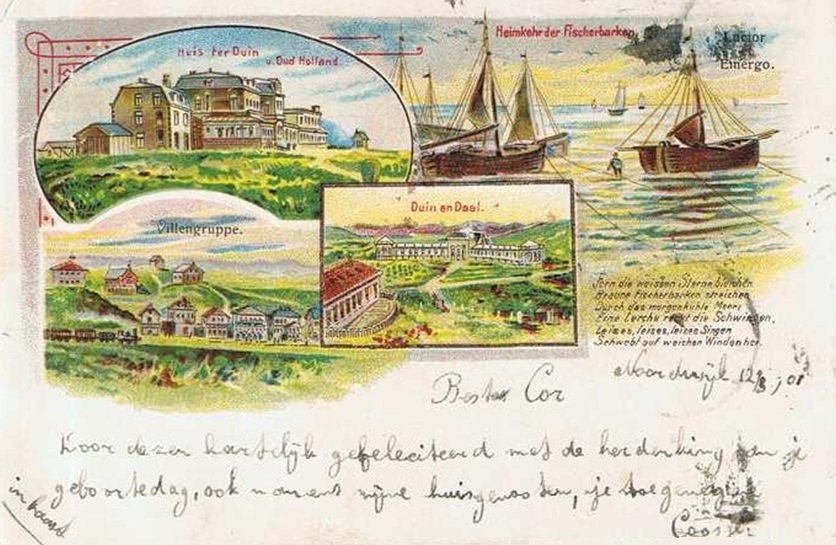 Huis ter Duin
u. Oud Holland.
Heimkehr der Fischerbarken.
Luctor
Emergo.
Villengruppe.
Duin en Daal.
Fern die weissen Sterne bleichen
Braune Fischerbarken streichen
Durch das morgenkühle Meer;
Eine Lerche reckt die Schwingen,
Leises, leises, leises Singen
Schwebt auf weichen Winden her.
Noordwijk 12/8 '01
Beste Cor
Voor dezen hartelijk gefeliciteerd met de herdenking van je
geboortedag, ook namens mijne huisgenooten, je toegenegen
in haast